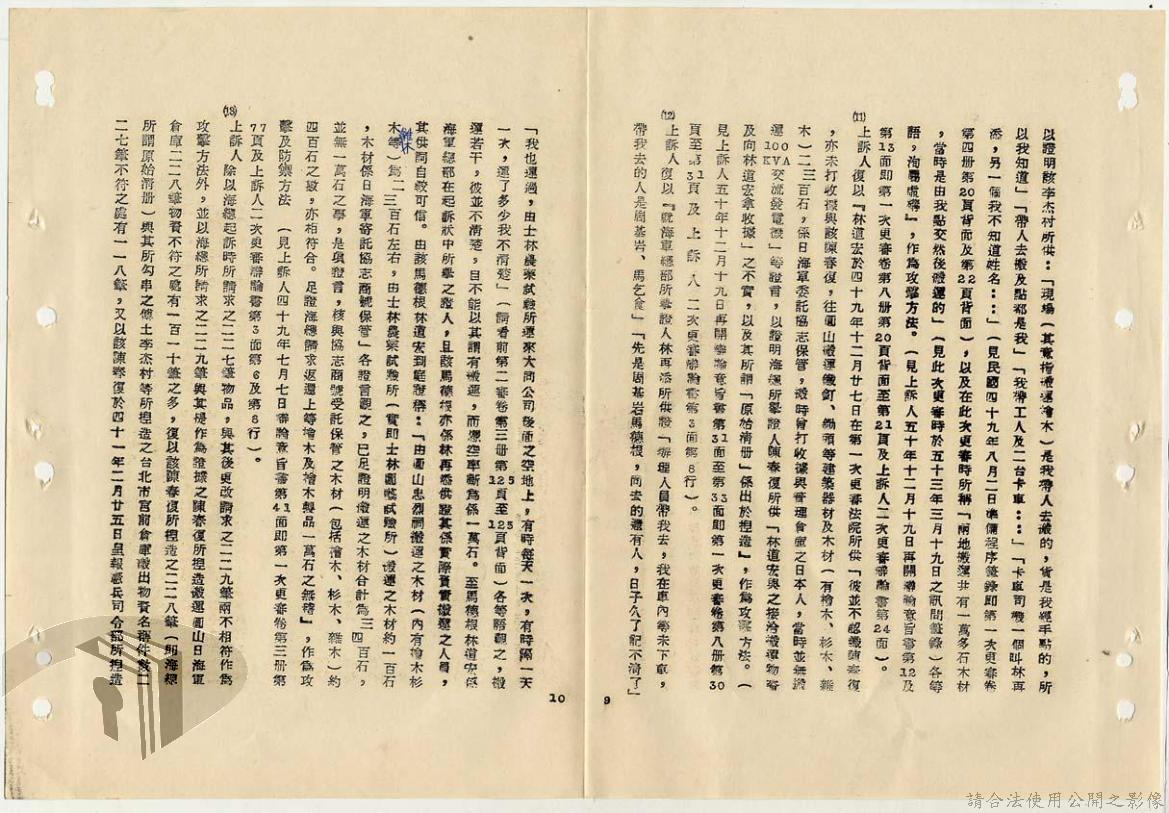 以證明該李杰村所供：「現場（其意指搬運檜木）是我帶人去搬的，貨是我經手點的，所
以我知道」「帶人去搬及點都是我」「我帶工人及二台卡車：：：」「卡車司機一個叫林再
悉，另一個我不知道姓名：：：」（見民國四十九年八月二日準備程序筆錄即第一次更審卷
第四册第20頁背面及第22頁背面），以及在此次更審時所稱「兩地搬運共有一萬多石木材
，當時是由我點交然後搬運的」（見此次更審時於五十三年三月十九日之訊問筆錄）各等
語，洵屬謊謬』，作爲攻擊方法。（見上訴人五十年十二月十九日再開辯論意旨書第12及
第13面即第一次更審卷第八册第20頁背面至第21頁及上訴人二次更審辯論書第24面）。
(11)上訴人復以『林道宏於四十九年十二月廿七日在第一次更審法院所供「彼並不認識陳春復
，亦未打收據與該陳春復，往圓山搬運鐵釘、鋤頭等建築器材及木材（有檜木、杉木、雜
木）二三百石，係日海軍委託協志保管，搬時曾打收據與管理倉庫之日本人，當時並無搬
運100KVA交流發電機」等證言，以證明海總所擧證人陳春復所供「林道宏與之接洽搬運物資
及向林道宏拿收據」之不實，以及其所謂「原始清册」係出於揑造』，作爲攻擊方法。（
見上訴人五十年十二月十九日再開辯論意旨書第31面至第33面即第一次更審卷第八册第30
頁至第31頁及上訴人二次更審辯論書第3面第8行）。
(12)上訴人復以『就海軍總部所擧證人林再添所供證「辦理人員帶我去，我在車內等未下車，
帶我去的人是周基岩、馬乞食」「先是周基岩馬德根，尙去的還有人，日子久了記不清了」
9
「我也運過，由士林農業試驗所運來大同公司後面之空地上，有時每天一次，有時隔一天
一次，運了多少我不清楚」（請看前第二審卷第三册第125頁至125頁背面）各等語觀之，搬
運若干，彼並不清楚，自不能以其謂有搬運，而憑空率斷爲係一萬石。至馬德根林道宏係
海軍總部在起訴狀中所擧之證人，且該馬德根亦係林再添供證其係實際負責搬運之人員，
其供詞自較可信。由該馬德根林道宏到庭證稱：『由圓山忠烈祠搬運之木材（內有檜木杉
木雜木等）爲二三百石左右，由士林農業試驗所（實即士林園藝試驗所）搬運之木材約一百石
，木材係日海軍寄託協志商號保管」各證言觀之，已足證明搬運之木材合計爲三四百石，
並無一萬石之事，是項證言，核與協志商號受託保管之木材（包括檜木、杉木、雜木）約
四百石之數，亦相符合。足證海總請求返還上等檜木及檜木製品一萬石之無稽』，作爲攻
擊及防禦方法（見上訴人四十九年七月七日辯論意旨書第41面即第一次更審卷第三册第
77頁及上訴人二次更審辯論書第3面第6及第8行）。
(13)上訴人除以海總起訴時所請求之二二七筆物品，與其後更改請求之二二九筆兩不相符作爲
攻擊方法外，並以海總所請求之二二九筆與其提作爲證據之陳春復所揑造搬運圓山日海軍
倉庫二二八筆物資不符之處有一百一十筆之多，復以該陳春復所揑造之二二八筆（則海總
所謂原始清册）與其所勾串之傭士李杰村等所揑造之台北市宮前倉庫搬出物資名稱件數二
二七筆不符之處有一一八筆，又以該陳春復於四十一年二月廿五日呈報憲兵司令部所揑造
10
請合法使用公開之影像